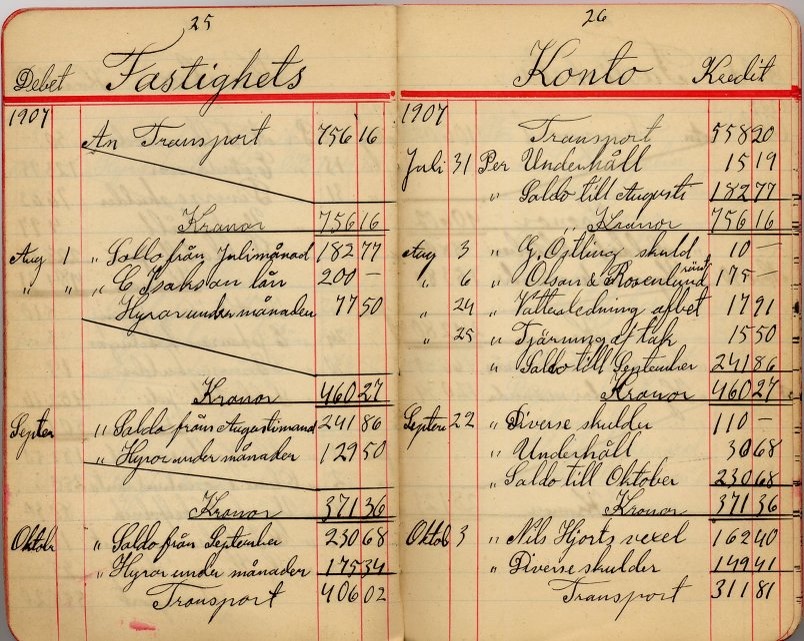 25
Debet Fastighets
1907
An Transport 756 16
Kronor 756 16
Aug 1 " Saldo från Julimånad 182 77
" " " C Isakson lån 200 —
Hyror under månaden 77 50
Kronor 460 27
Septer " Saldo från Augustimånad 241 86
" Hyror under månader 129 50
Kronor 371 36
Oktobr " Saldo från September 230 68
" Hyror under månader 175 34
Transport 406 02
26
Konto Kredit
1907
Transport 558 20
Juli 31 Per Underhåll 15 19
" Saldo till Augusti 182 77
" Kronor 756 16
Aug 3 " G. Östling skuld 10 —
" 6 " Olson & Rosenlund ränt 175 —
" 24 " Vattenledning arbet 17 91
" 25 " Tjärning af tak 15 50
" Saldo till September 241 86
Kronor 460 27
Septem 22 " Diverse skulder 110 —
" Underhåll 30 68
" Saldo till Oktober 230 68
Kronor 371 36
Oktob 3 " Nils Hjorts vexel 162 40
" Diverse skulder 149 41
Transport 311 81